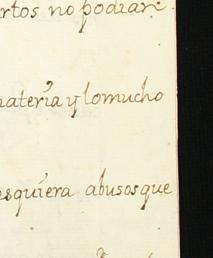 rtos no podian
materia y lo mucho
esquiera abusos que